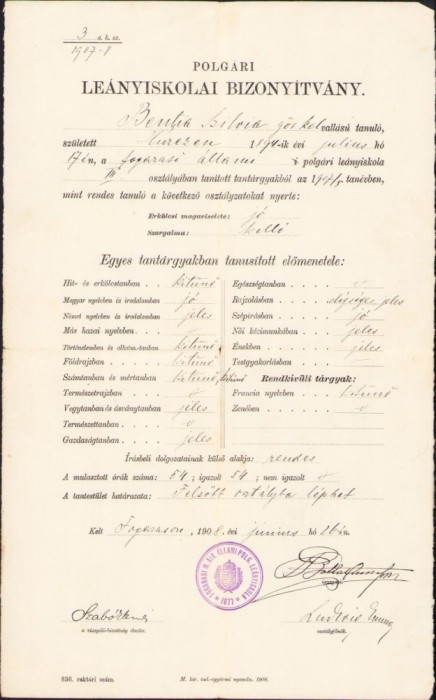 3 a. b. sz.
1907-8
POLGÁRI
LEÁNYISKOLAI BIZONYÍTVÁNY.
Bentia Silvia gör kel vallású tanuló,
született 1894-ik évi julius hó
17én, a fogarasi állami polgári leányiskola
III osztályában tanított tantárgyakból az 1907/8. tanévben,
mint rendes tanuló a következő osztályzatokat nyerte:
Erkölcsi magaviselete: jó
Szorgalma: kellő
Egyes tantárgyakban tanusított előmenetele:
Hit- és erkölcstanban kitünő
Magyar nyelvben és irodalomban jó
Német nyelvben és irodalomban jeles
Más hazai nyelvben
Történelemben és alkotm.-tanban kitünő
Földrajzban kitünő
Számtanban és mértanban kitünő, kitünő
Természetrajzban
Vegytanban és ásványtanban jeles
Természettanban
Gazdaságtanban jeles
Egészségtanban
Rajzolásban elégséges, jeles
Szépírásban jó
Női kézimunkában jeles
Énekben jeles
Testgyakorlásban
Rendkívüli tárgyak:
Francia nyelvben kitünő
Zenében
Írásbeli dolgozatainak külső alakja: rendes
A mulasztott órák száma: 54; igazolt 54; nem igazolt
A tantestület határozata: Felsőbb osztályba léphet
Kelt Fogarason, 1908. évi junius hó 26-án.
FOGARASI M. KIR. ÁLLAMI POLG. LEÁNYISKOLA
1877
a vizsgáló-bizottság elnöke.
osztályfőnök.
836. raktári szám.
M. kir. tud.-egyetemi nyomda. 1908.